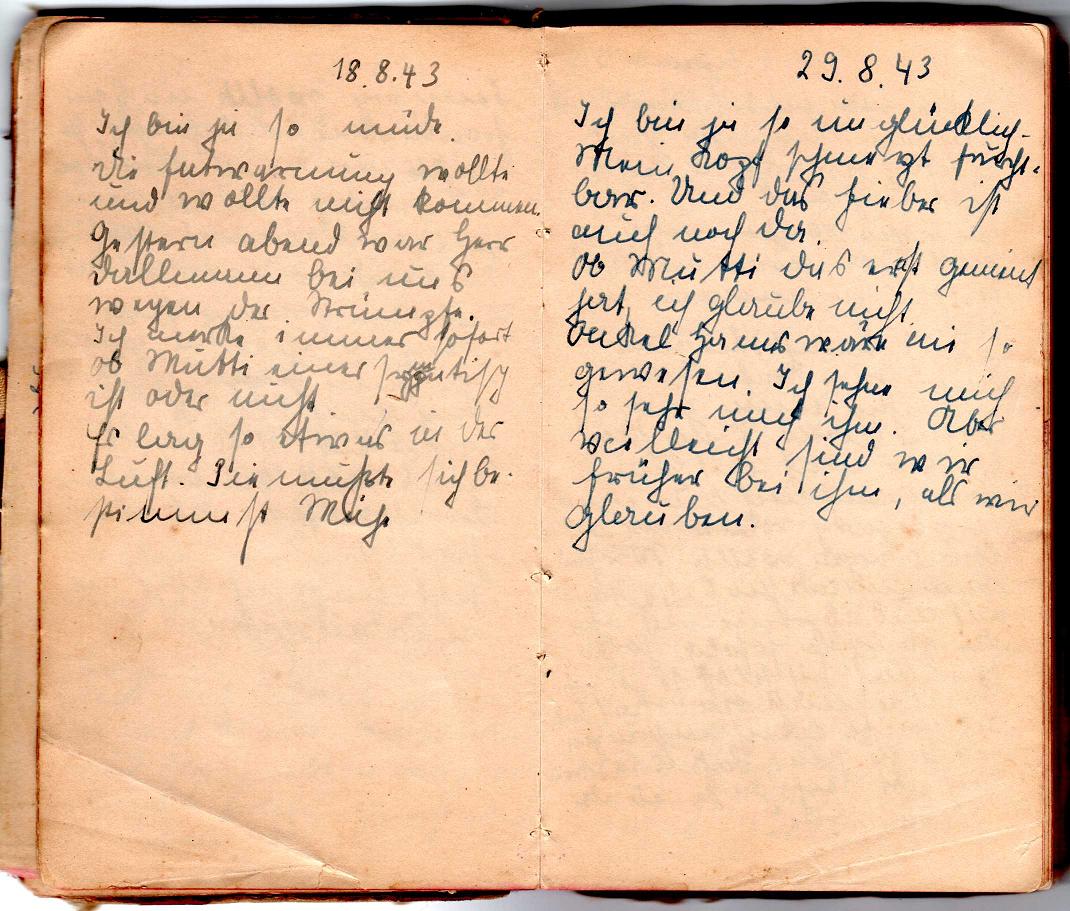 18.8.43
Ich bin ja so müde.
Die Entwarnung wollte
und wollte nicht kommen.
Gestern abend war Herr
Dallmann bei uns
wegen der Strümpfe.
Ich merke immer sofort
ob Mutti einer
ist oder nicht
Es lag so etwas in der
Luft. Sie mußte sich be-
stimmt Mühe
29.8.43
Ich bin ja so unglücklich.
Mein Kopf schmerzt furcht-
bar. Und das Fieber ist
auch noch da.
Ob Mutti das erst gemeint
hat, ich glaube nicht
Onkel Hans wäre nie so
gewesen. Ich sehne mich
so sehr nach ihm. Aber
vielleicht sind wir
früher bei ihm, als wir
glauben.